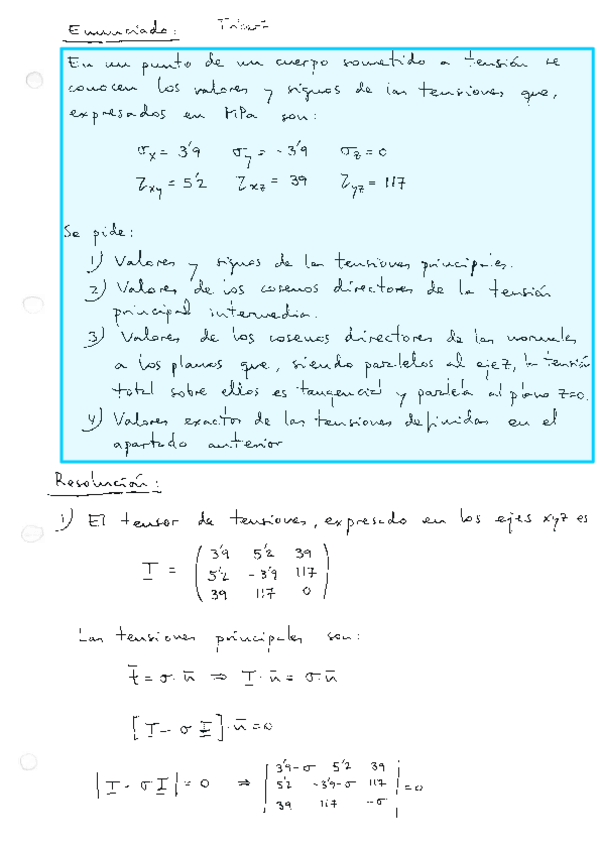 Enunciado:
En un punto de un cuerpo sometido a tensión se
conocen los valores y signos de las tensiones que,
expresados en MPa son:
σx = 3'9 σy = -3'9 σz = 0
τxy = 5'2 τxz = 39 τyz = 117
Se pide:
1) Valores y signos de las tensiones principales.
2) Valores de los cosenos directores de la tensión
principal intermedia.
3) Valores de los cosenos directores de las normales
a los planos que, siendo paralelos al eje z, la tensión
total sobre ellos es tangencial y paralela al plano z=0.
4) Valores exactos de las tensiones definidas en el
apartado anterior
Resolución:
1) El tensor de tensiones, expresado en los ejes xyz es
T = ( 3'9 5'2 39
5'2 -3'9 117
39 117 0 )
Las tensiones principales son:
t̄ = σ·n̄ ⇒ T·n̄ = σ·n̄
[T - σ I]·n̄ = 0
|T - σ I| = 0 ⇒ | 3'9-σ 5'2 39
5'2 -3'9-σ 117
39 117 -σ | = 0